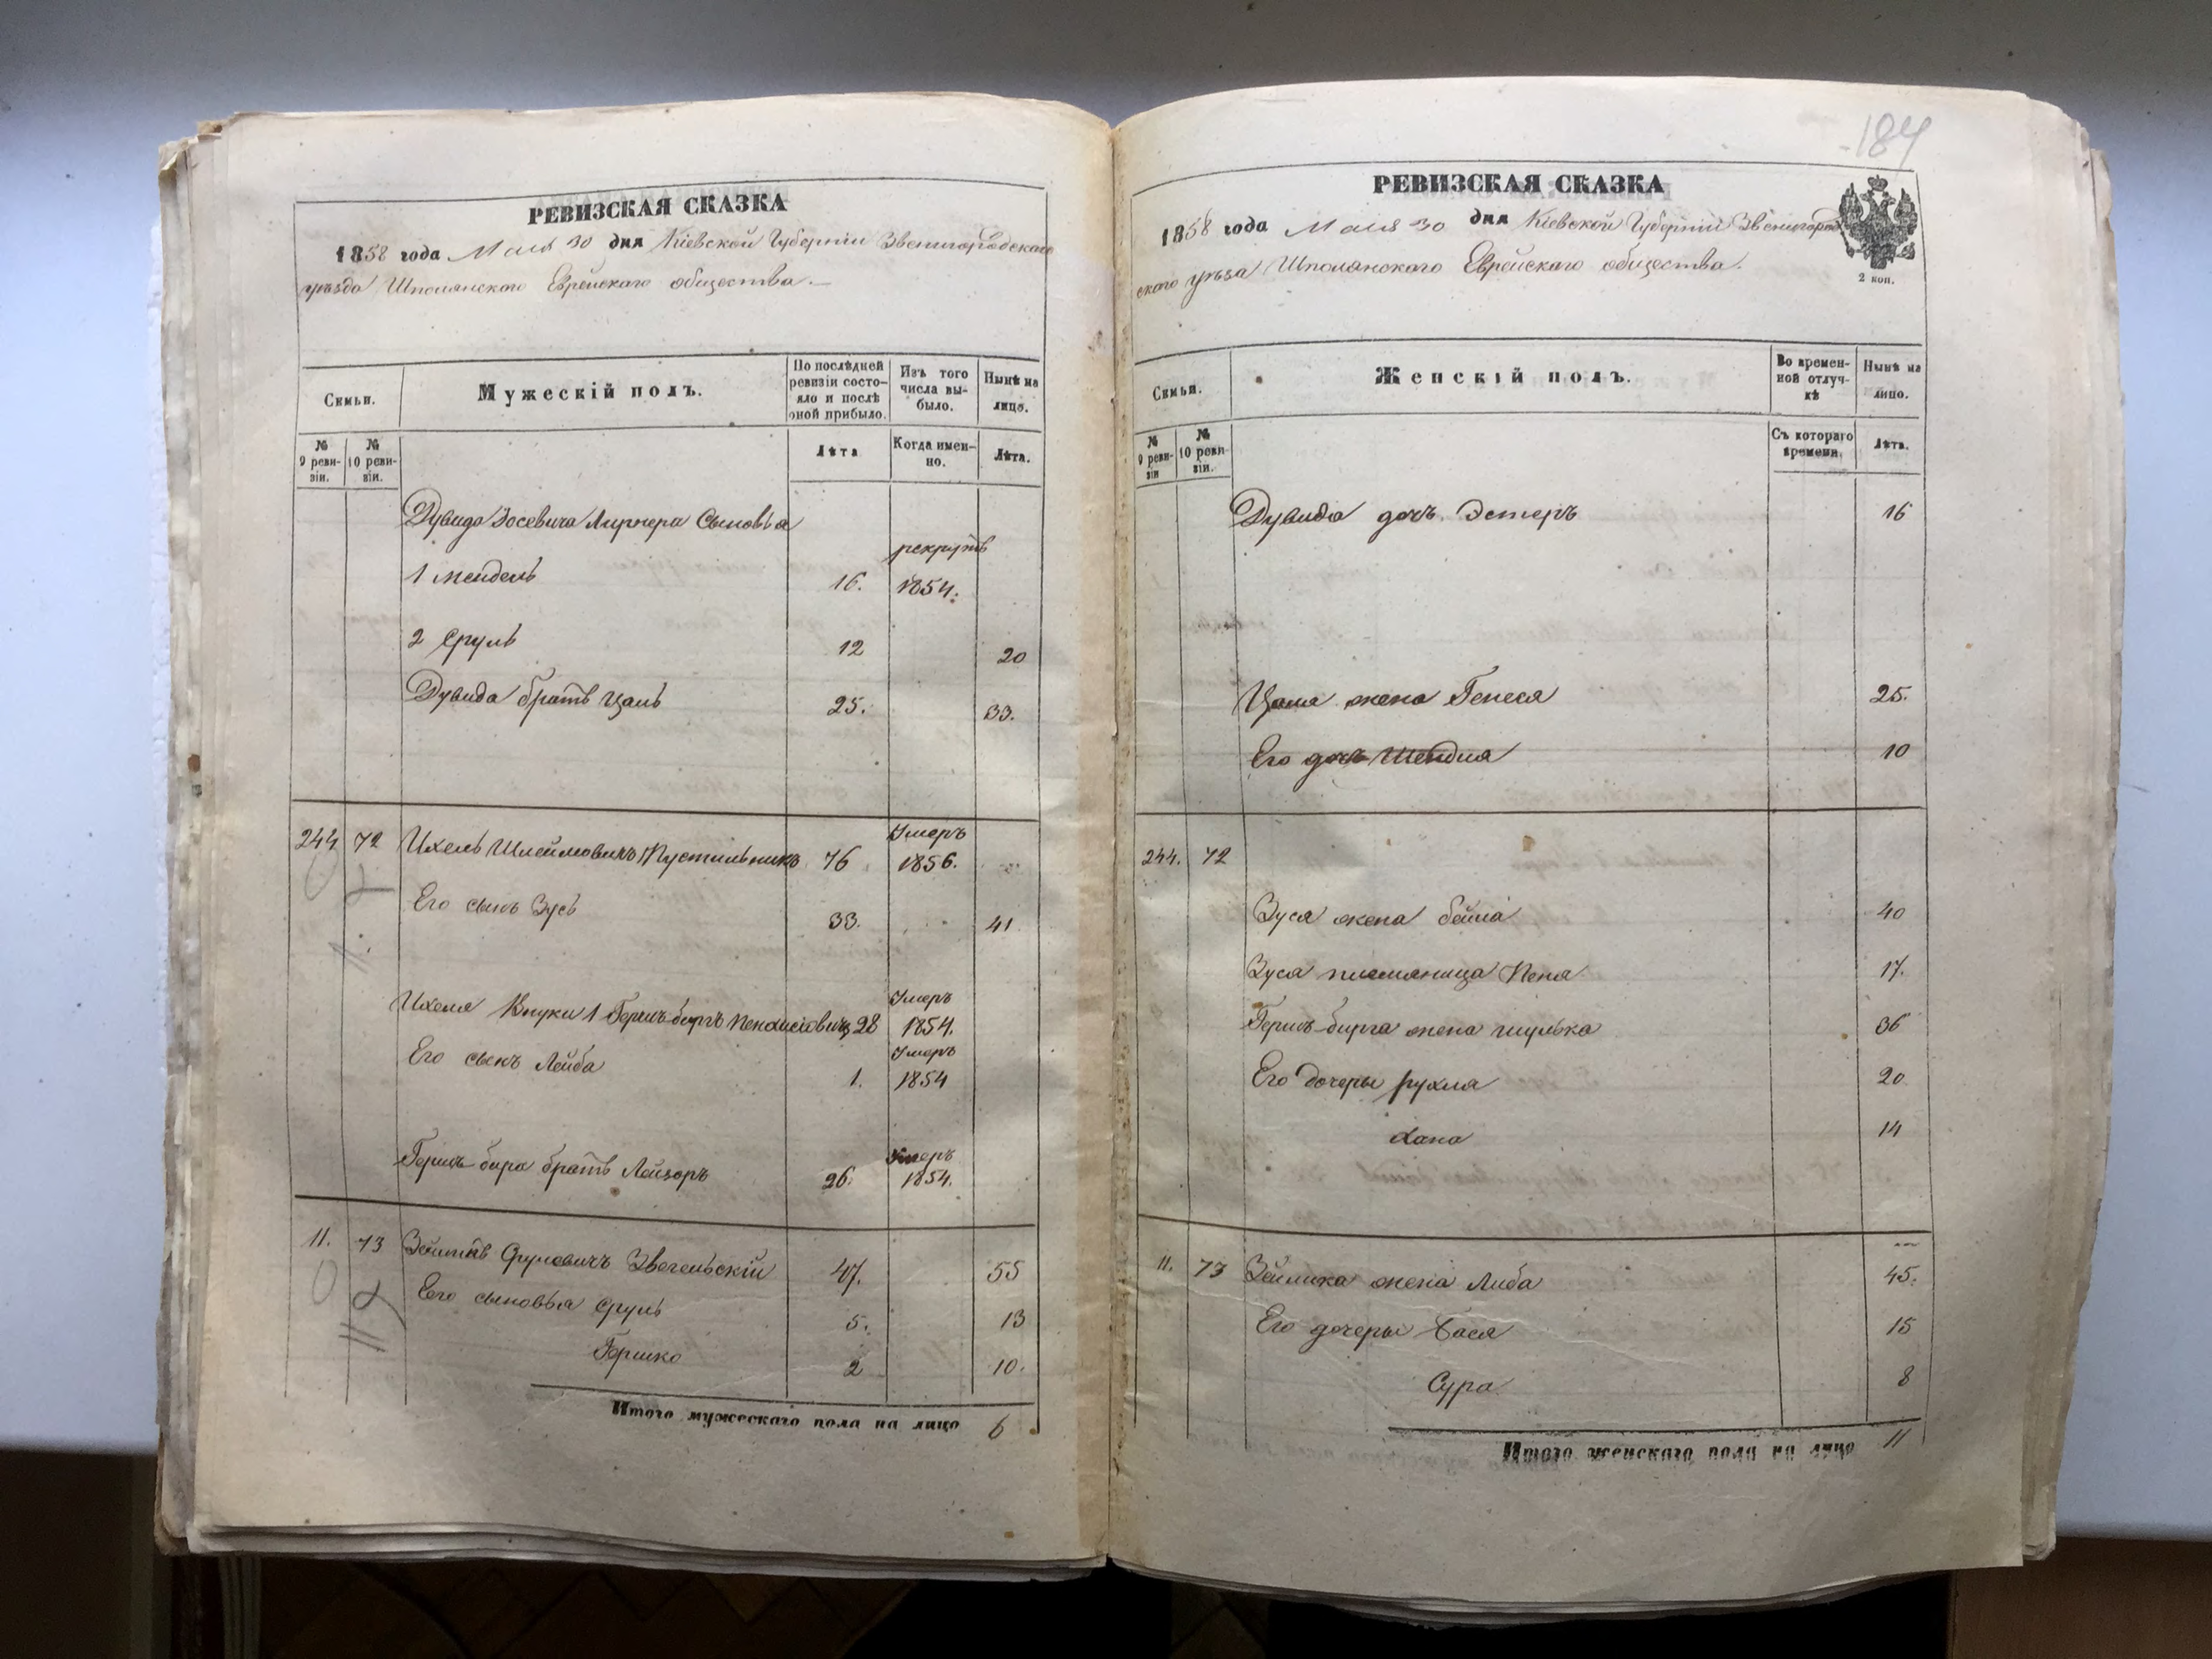 РЕВИЗСКАЯ СКАЗКА
1858 года Мая 30 дня Кіевской Губерніи Звенигородскаго
уѣзда Шполянскаго Еврейскаго общества.
Семьи.
Мужескій полъ.
По послѣдней ревизіи состояло и послѣ оной прибыло.
Изъ того числа выбыло.
Нынѣ на лицо.
№ 9 ревизіи.
№ 10 ревизіи.
Лѣта
Когда именно.
Лѣта.
Дувида Іосевича Лирнера Сыновья
рекрутъ
1 Мендель 16. 1854.
2 Сруль 12 20
Дувида братъ Цаль 25. 33.
Умеръ
244 72 Ихель Шлеймовичъ Пустильникъ 76 1856.
Его сынъ Зусь 33. 41
Умеръ
Ихеля Внуки 1 Гершъ-беръ 28 1854.
Умеръ
Его сынъ Лейба 1. 1854
Умеръ
Гершъ-бера братъ Лейзоръ 26. 1854.
11. 73 Сруловичъ Звегельскій 47. 55
Его сыновья Сруль 5. 13
Гершко 2 10.
Итого мужескаго пола на лицо 6
184
РЕВИЗСКАЯ СКАЗКА
1858 года Мая 30 дня Кіевской Губерніи Звенигород
скаго уѣзда Шполянскаго Еврейскаго общества.
2 коп.
Семьи.
Женскій полъ.
Во временной отлучкѣ
Нынѣ на лицо.
№ 9 ревизіи
№ 10 ревизіи.
Съ котораго времени.
Лѣта.
Дувида дочь Эстеръ 16
Цаля жена Генеся 25.
Его дочь Шейдля 10
244. 72
Зуся жена Бейла 40
Зуся племяница Пеня 17.
жена 36
Его дочеры Рухля 20
Хана 14
11. 73 Зейлика жена Либа 45.
Его дочеры Бася 15
Сура 8
Итого женскаго пола на лицо 11